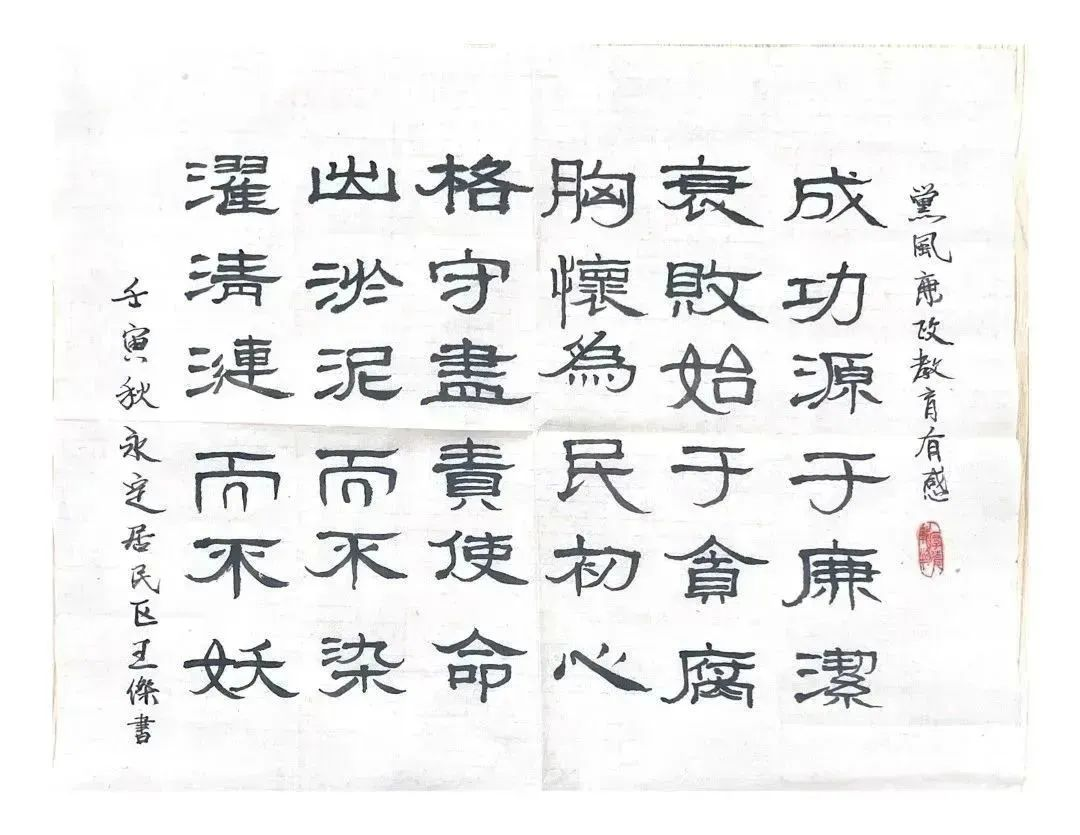 黨風廉政教育有感
成功源于廉潔
衰敗始于貪腐
胸懷為民初心
格守盡責使命
出淤泥而不染
濯清漣而不妖
壬寅秋永定居民区王傑書